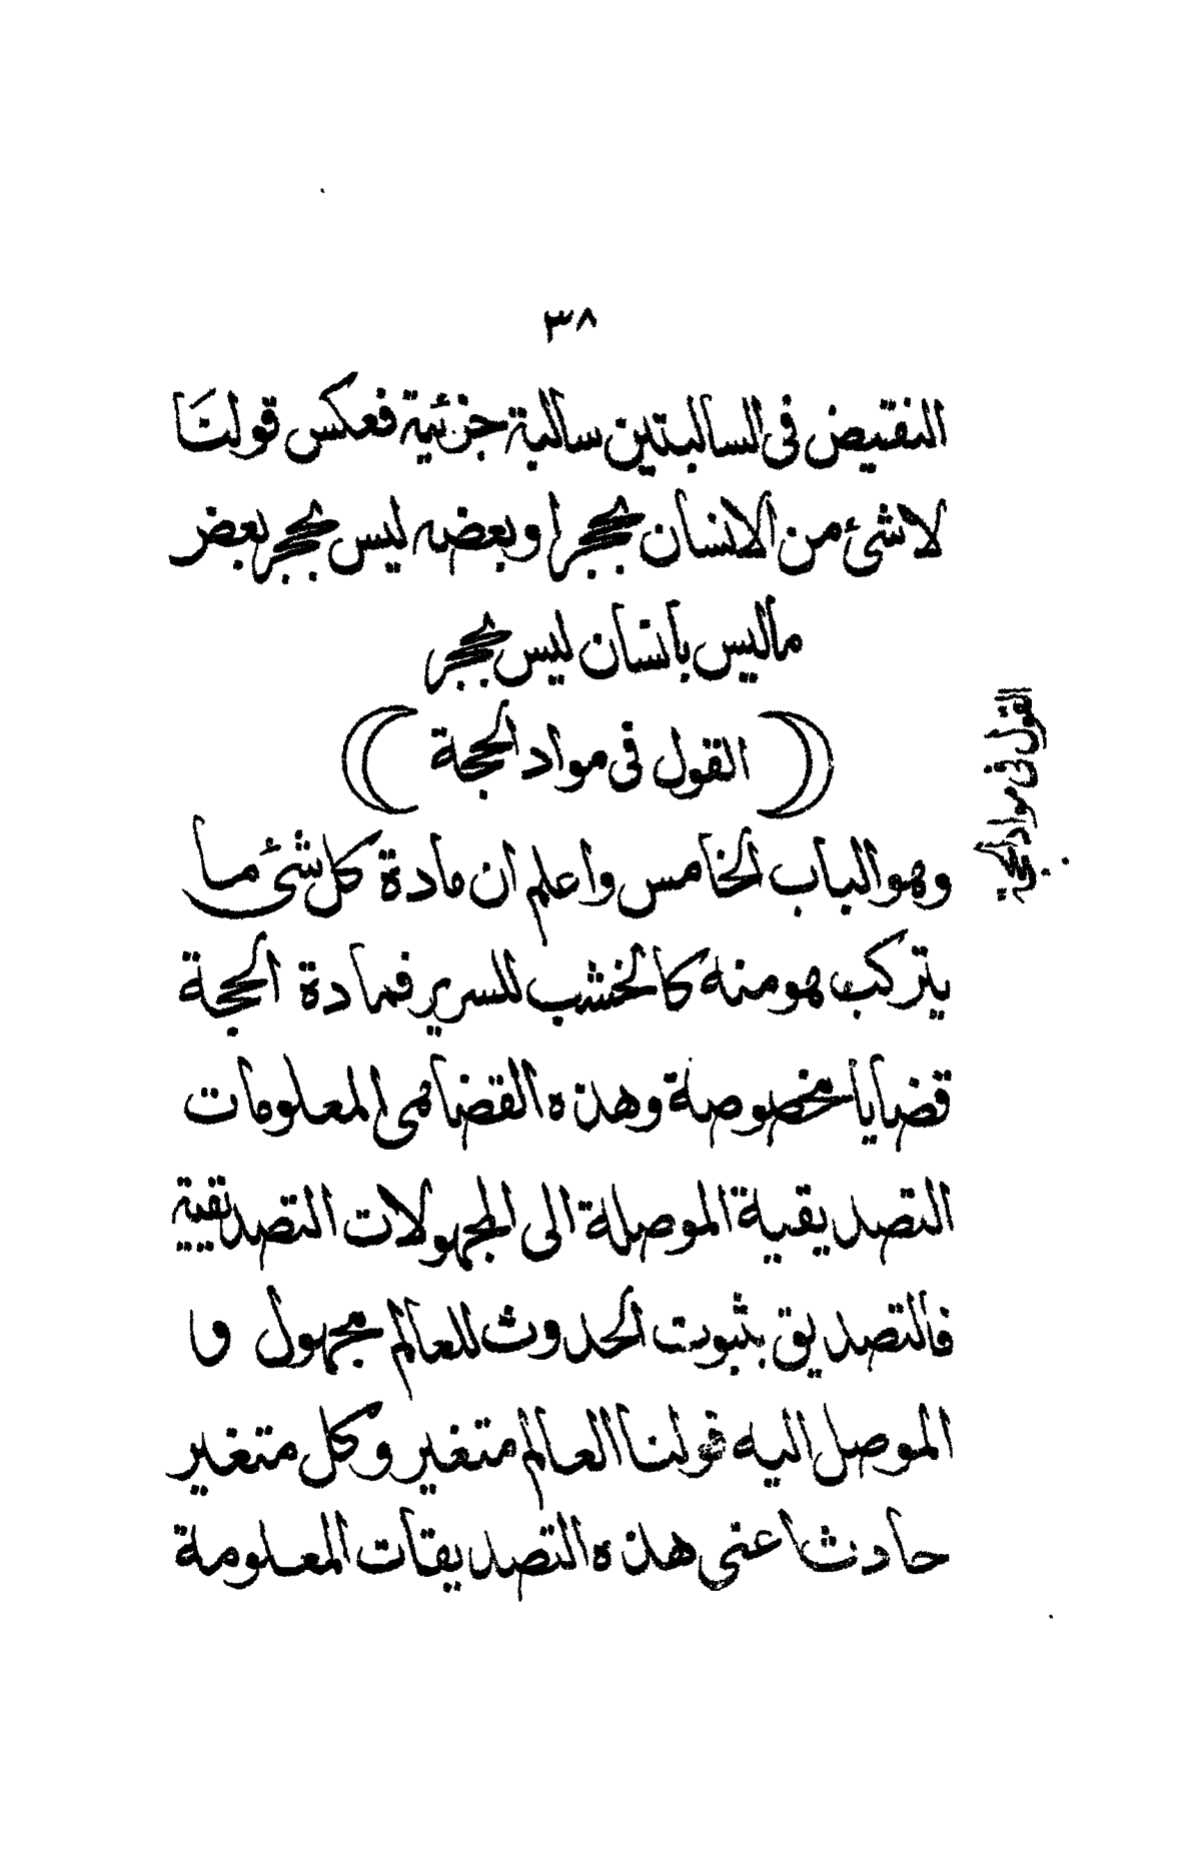 ٣٨
النقيض فى السالبتين سالبة جزئية فعكس قولنا
لاشئ من الانسان بحجر او بعضه ليس بحجر بعض
ماليس بانسان ليس بحجر
( القول فى مواد الحجة )
القول فى مواد الحجة
وهو الباب الخامس واعلم ان مادة كل شئ ما
يتركب هو منه كالخشب للسرير فمادة الحجة
قضايا مخصوصة وهذه القضا هى المعلومات
التصديقية الموصلة الى المجهولات التصديقية
فالتصديق بثبوت الحدوث للعالم مجهول و
الموصل اليه قولنا العالم متغير وكل متغير
حادث اعنى هذه التصديقات المعلومة